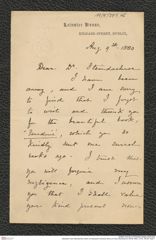 Leinster House,
Kildare Street, Dublin,
Aug. 9th 1880
Dear Dr. Steindachner
I have been
away, and I am sorry
to find that I forgot
to write and thank you
for the beautiful book,
which you so
kindly sent me some
weeks ago. I trust that
you will forgive my
negligence, and assure
you that I shall value
your kind present most